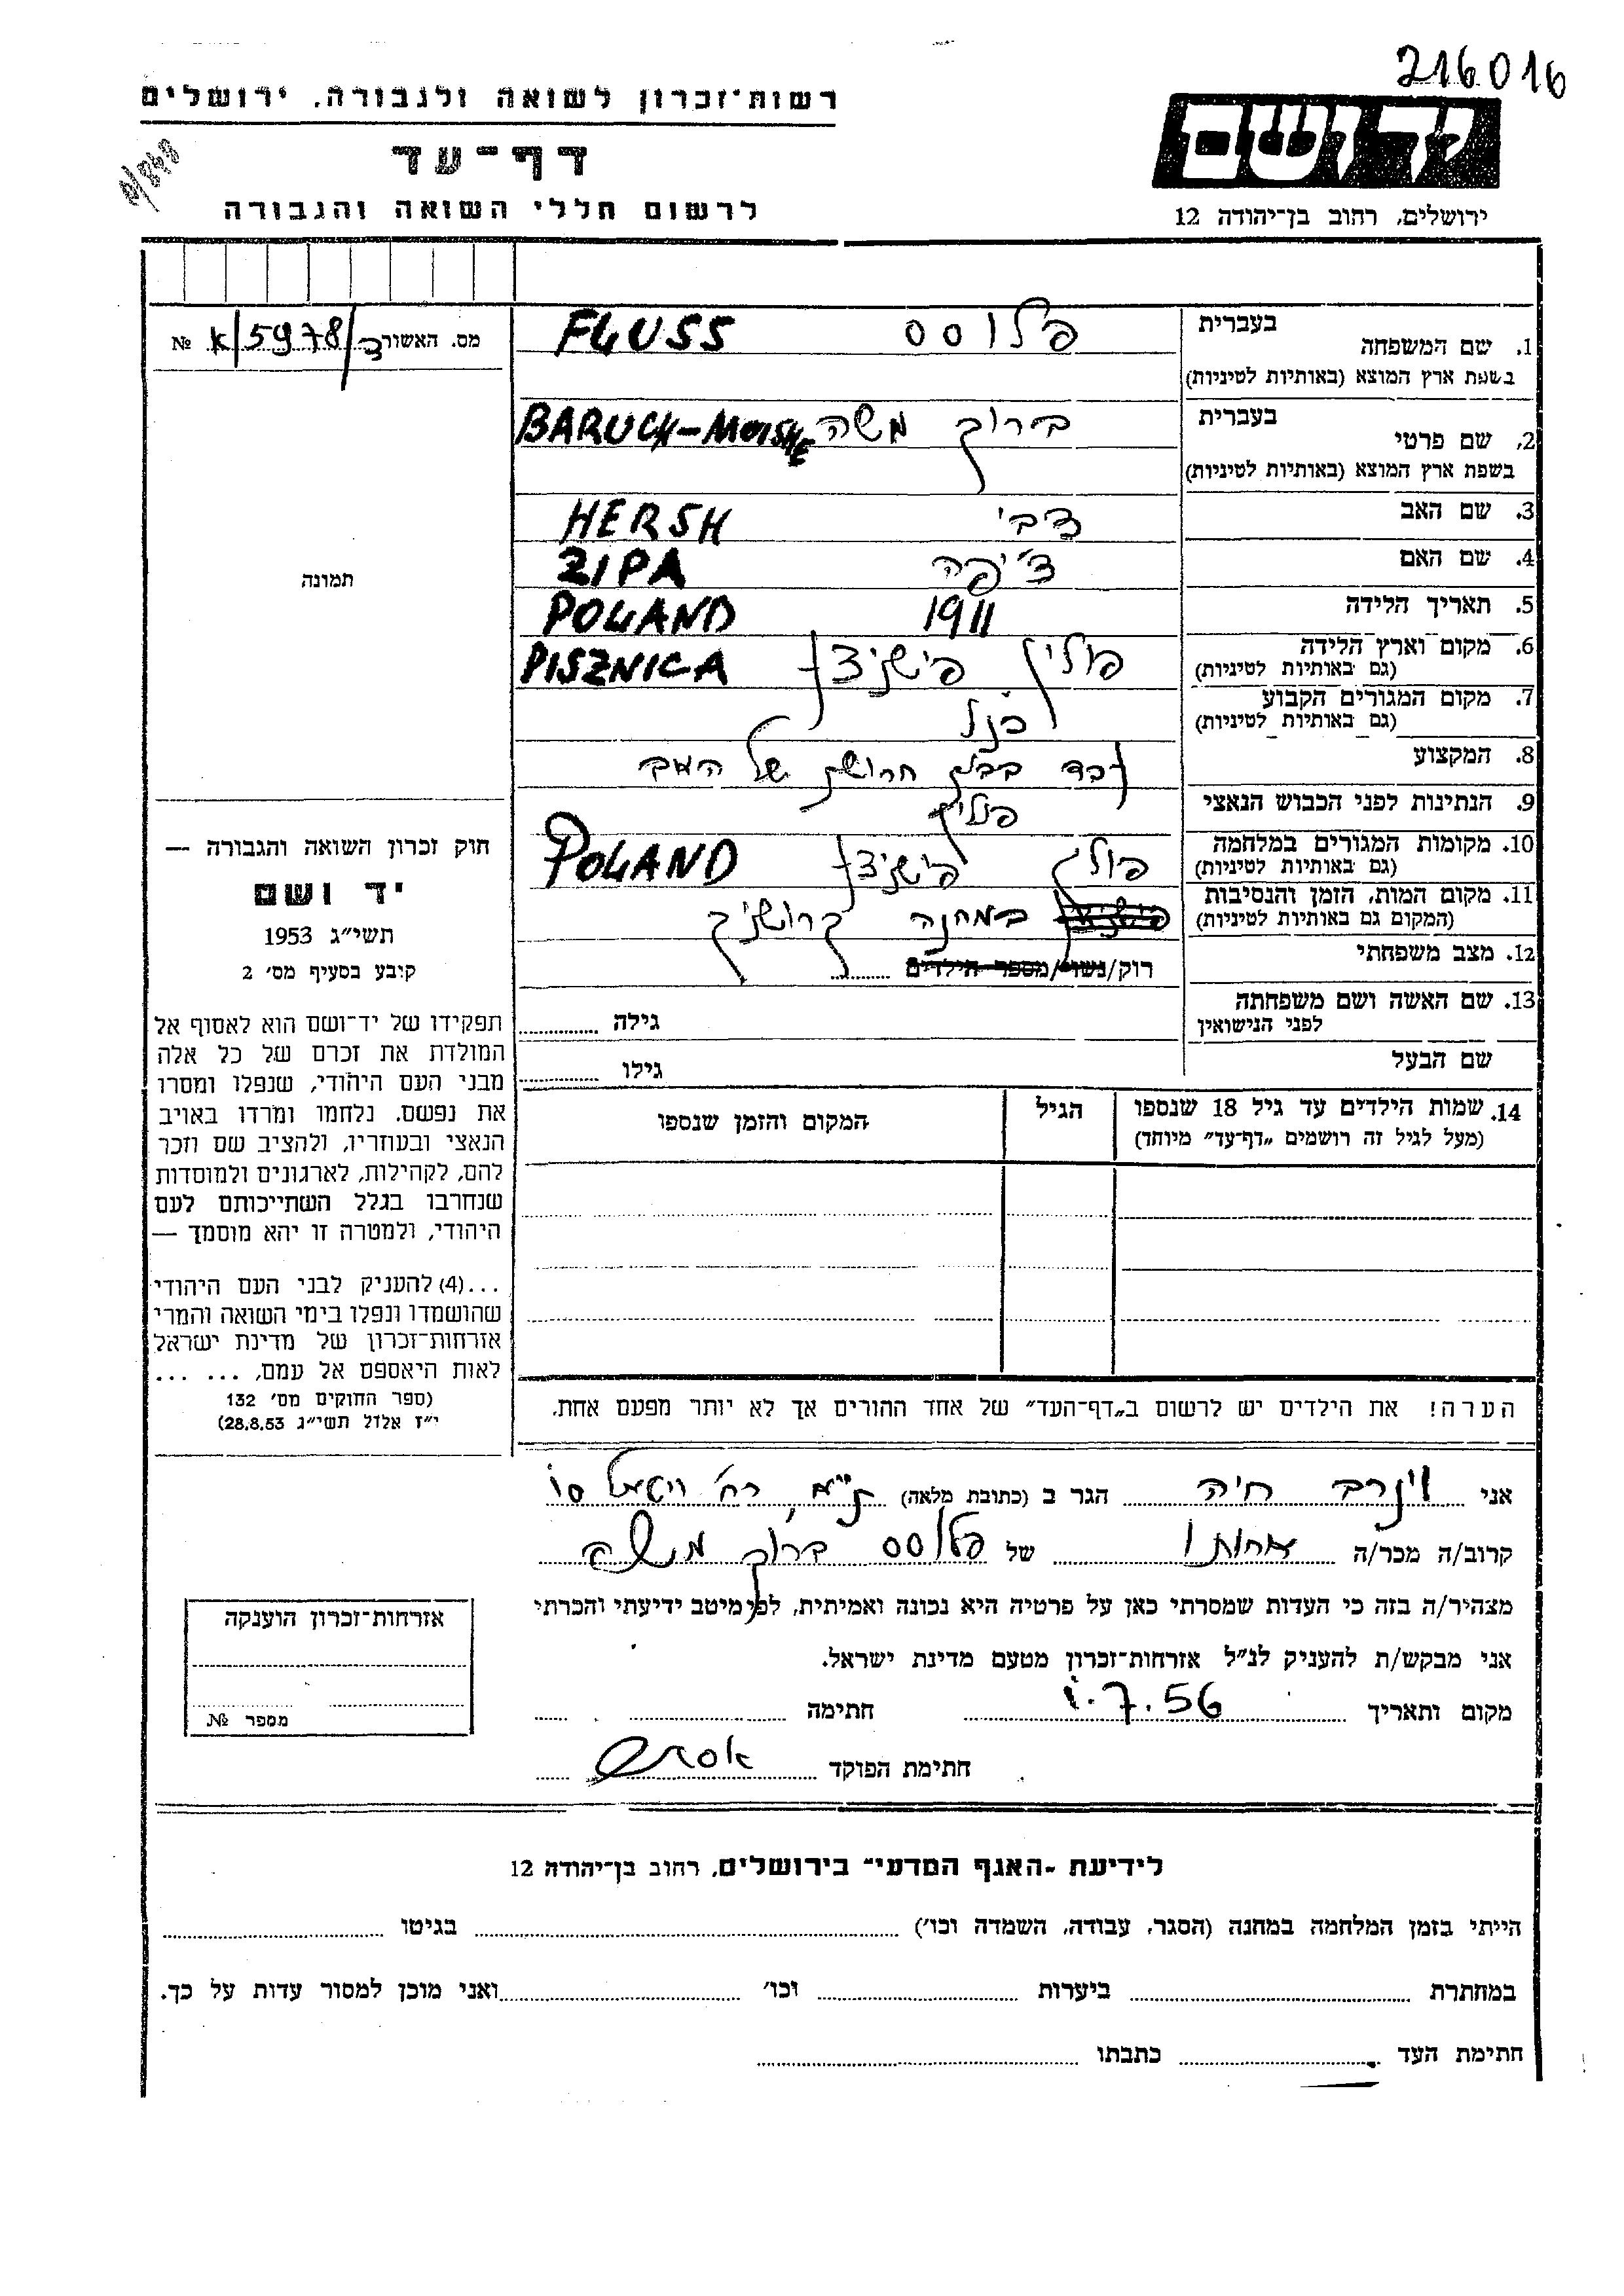 216016
רשות־זכרון לשואה ולגבורה, ירושלים
יד ושם
דף־עד
לרשום חללי השואה והגבורה
ירושלים, רחוב בן־יהודה 12
מס. האשור
№ א/5978/כ
תמונה
1. שם המשפחה
בעברית
פלוסס FLUSS
בשפת ארץ המוצא (באותיות לטיניות)
2. שם פרטי
בעברית
ברוך משה BARUCH-MOISHE
בשפת ארץ המוצא (באותיות לטיניות)
3. שם האב צבי HERSH
4. שם האם ציפה ZIPA
5. תאריך הלידה 1911 POLAND
6. מקום וארץ הלידה פולין פישניצץ PISZNICA
(גם באותיות לטיניות)
7. מקום המגורים הקבוע כנ"ל
(גם באותיות לטיניות)
8. המקצוע עבד בבית חרושת של האב
9. הנתינות לפני הכבוש הנאצי פולין
10. מקומות המגורים במלחמה POLAND
(גם באותיות לטיניות)
11. מקום המות, הזמן והנסיבות במחנה
(המקום גם באותיות לטיניות)
12. מצב משפחתי רוק/נשוי/מספר הילדים
13. שם האשה ושם משפחתה
לפני הנישואין
גילה
שם הבעל גילו
14. שמות הילדים עד גיל 18 שנספו
(מעל לגיל זה רושמים „דף־עד" מיוחד)
הגיל
המקום והזמן שנספו
הערה! את הילדים יש לרשום ב„דף־העד" של אחד ההורים אך לא יותר מפעם אחת.
חוק זכרון השואה והגבורה —
יד ושם
תשי"ג 1953
קובע בסעיף מס׳ 2
תפקידו של יד־ושם הוא לאסוף אל
המולדת את זכרם של כל אלה
מבני העם היהודי, שנפלו ומסרו
את נפשם. נלחמו ומרדו באויב
הנאצי ובעוזריו, ולהציב שם וזכר
להם, לקהילות, לארגונים ולמוסדות
שנחרבו בגלל השתייכותם לעם
היהודי, ולמטרה זו יהא מוסמך —
...(4) להעניק לבני העם היהודי
שהושמדו ונפלו בימי השואה והמרי
אזרחות־זכרון של מדינת ישראל
לאות היאספם אל עמם, ... ...
(ספר החוקים מס׳ 132
י"ז אלול תשי"ג 28.8.53)
אני וינרב חיה הגר ב (כתובת מלאה) ת"א, רח׳
קרוב/ה מכר/ה אחותו של פלוסס ברוך משה
מצהיר/ה בזה כי העדות שמסרתי כאן על פרטיה היא נכונה ואמיתית, לפי מיטב ידיעתי והכרתי
אני מבקש/ת להעניק לנ"ל אזרחות־זכרון מטעם מדינת ישראל.
מקום ותאריך 1.7.56 חתימה
חתימת הפוקד
אזרחות־זכרון הוענקה
מספר №
לידיעת -האגף המדעי" בירושלים, רחוב בן־יהודה 12
הייתי בזמן המלחמה במחנה (הסגר, עבודה, השמדה וכו׳) בגיטו
במחתרת ביערות וכו׳ ואני מוכן למסור עדות על כך.
חתימת העד כתבתו